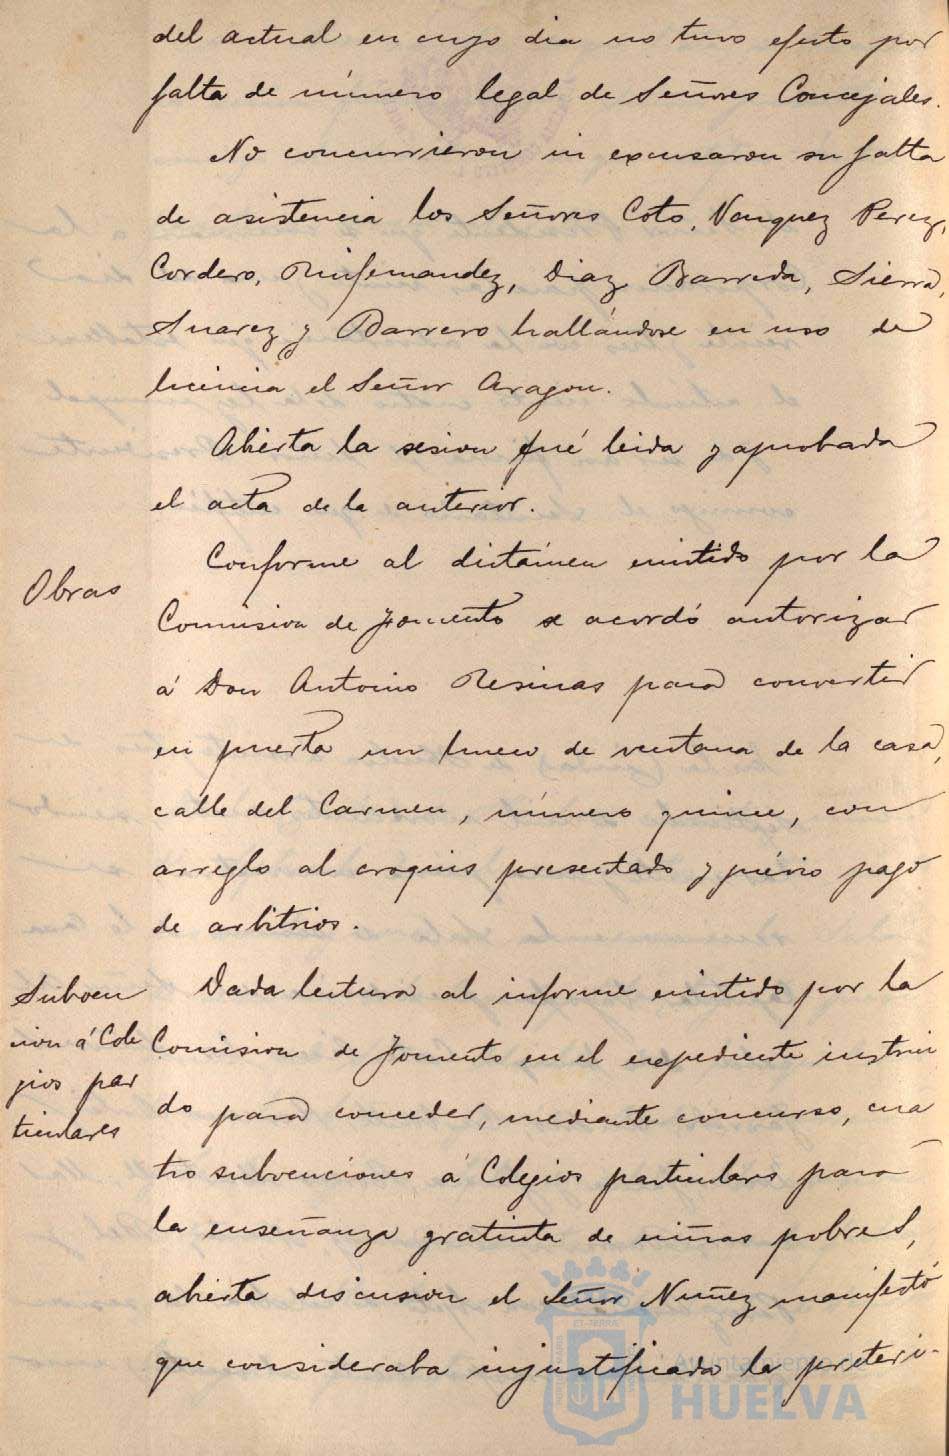 del actual en cuyo dia no tuvo efecto por
falta de número legal de Señores Concejales.
No concurrieron ni excusaron su falta
de asistencia los Señores Coto, Vazquez Perez,
Cordero, Ruifernandez, Diaz Barreda, Sierra,
Suarez y Barrero hallándose en uso de
licencia el Señor Aragon.
Abierta la sesion fué leida y aprobada
el acta de la anterior.
Obras
Conforme al dictámen emitido por la
Comision de Fomento se acordó autorizar
á Don Antonio Resinas para convertir
en puerta un hueco de ventana de la casa,
calle del Carmen, número quince, con
arreglo al croquis presentado y prévio pago
de arbitrios.
Subven
cion á Cole
gios par
ticulares
Dada lectura al informe emitido por la
Comision de Fomento en el expediente instrui
do para conceder, mediante concurso, cua
tro subvenciones á Colegios particulares para
la enseñanza gratuita de niñas pobres,
abierta discusion el Señor Nuñez manifestó
que consideraba injustificada la preteri-
Ayuntamiento de
HUELVA